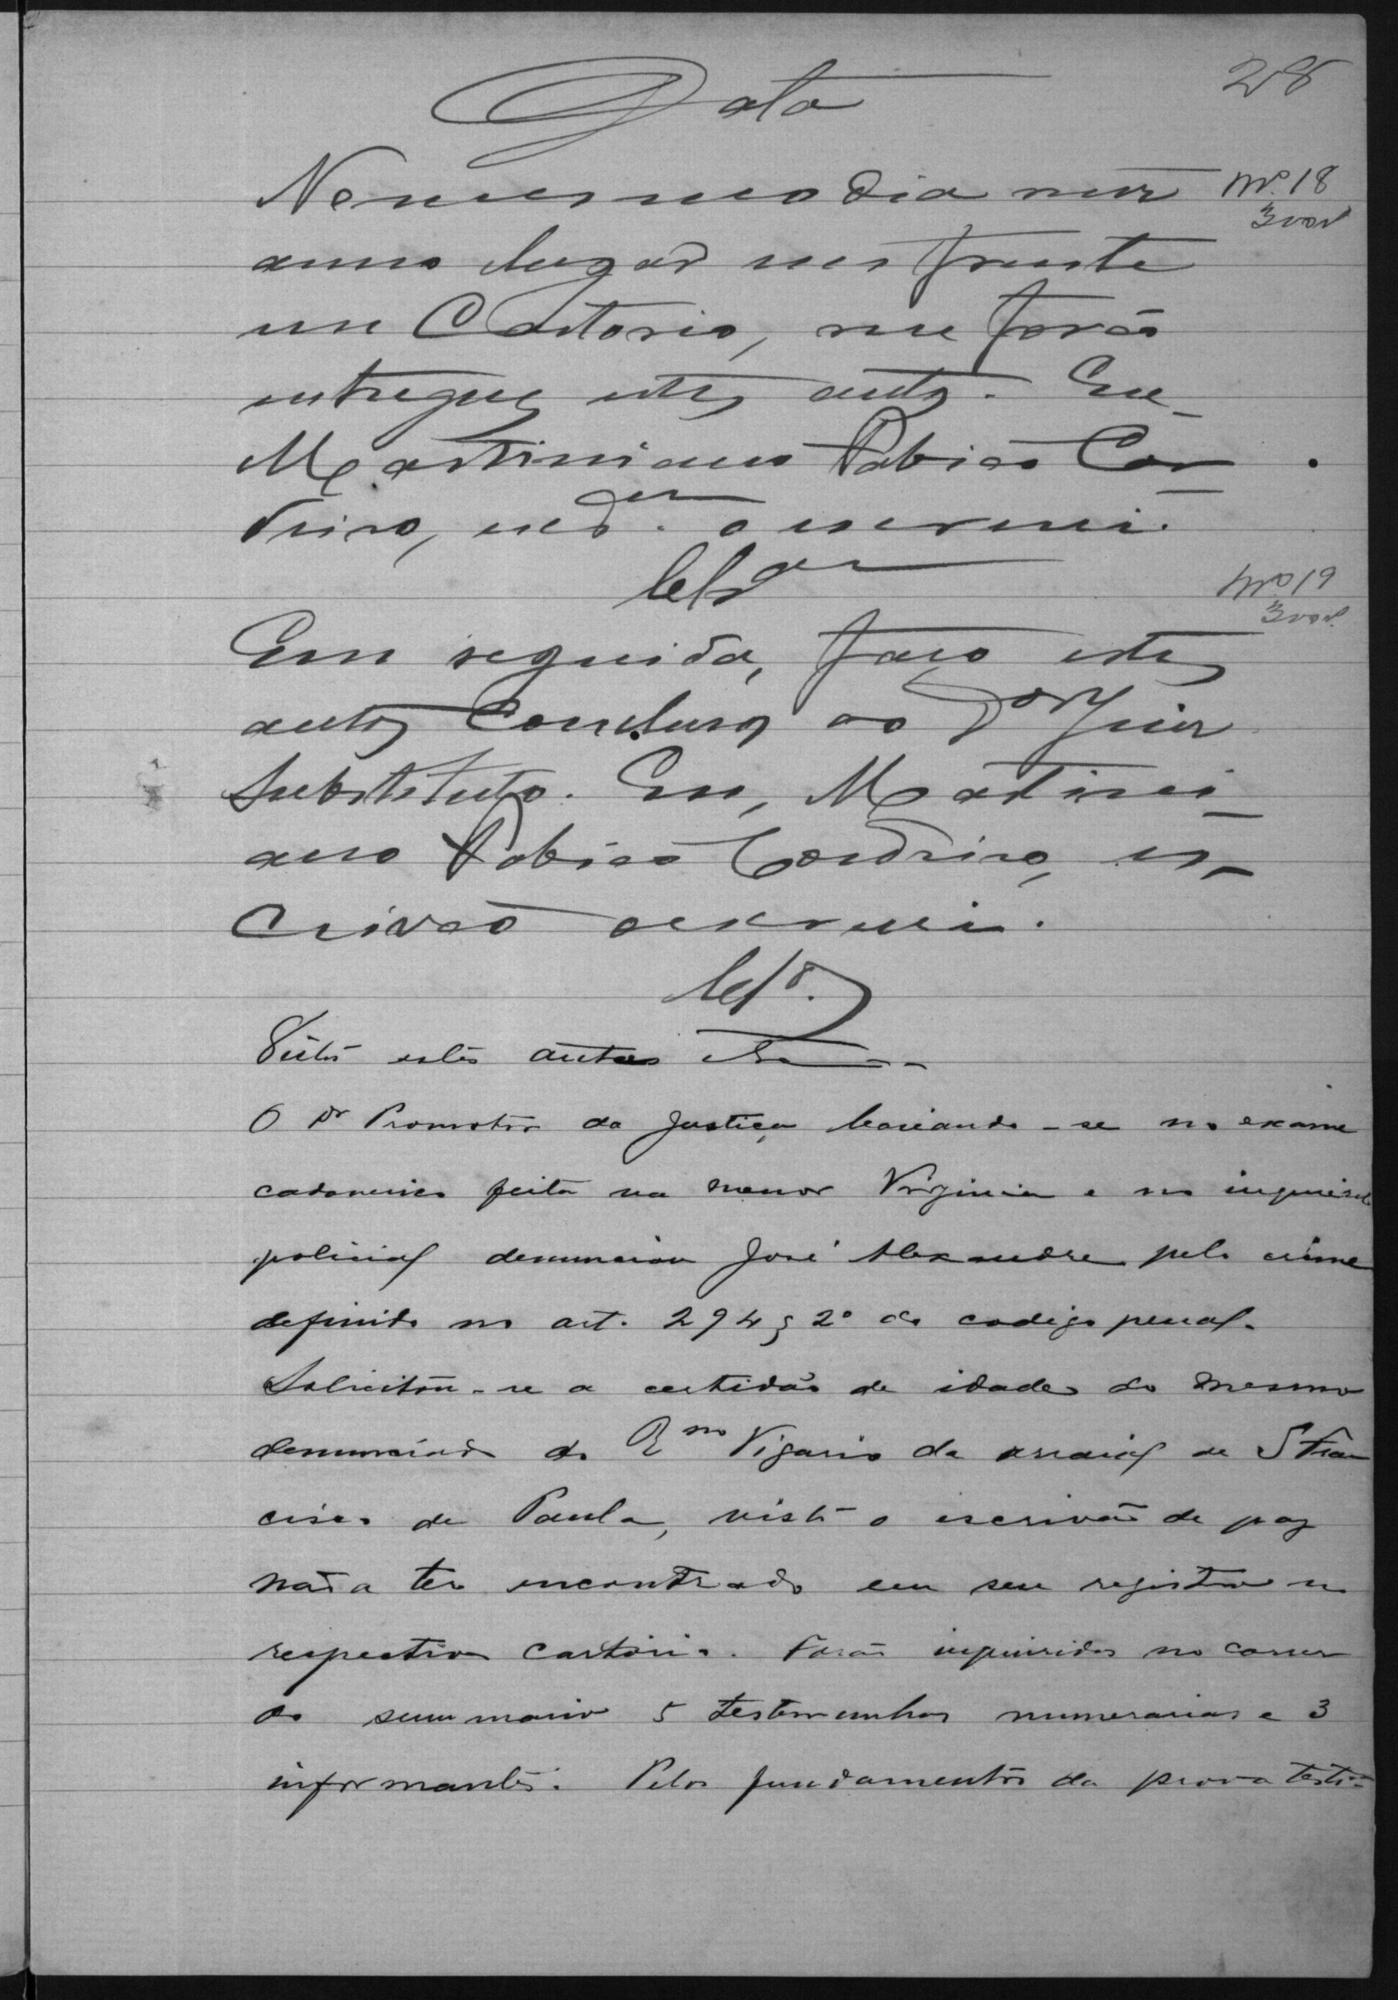 28
Data
No mesmo dia mez
Nº 18
anno lugar
em Cartorio, me forão
entregues estes autos. Eu
Martiniano Tobias Cor
deiro, escrm. o escrevi.
Clsam
Nº 19
Em seguida, faço estes
autos conclusos ao Dor Juiz
Substituto. Eu, Martini
ano Tobias Cordeiro, es
crivão o escrevi.
Clso.
Vistos estes autos
O Dr Promotor da Justiça baseando-se no exame
cadaverico feito na menor Virginia e no inquerito
policial denunciou José Alexandre pelo crime
definido no art. 294 § 2º do codigo penal.
Solicitou-se a certidão de idade do mesmo
denunciado do Rmo Vigario do arraial de S Fran
cisco de Paula, visto o escrivão de paz
não a ter encontrado em seu registro no
respectivo cartorio. Forão inquiridas no correr
do summario 5 testemunhas numerarias e 3
informantes. Pelos fundamentos da prova testi-